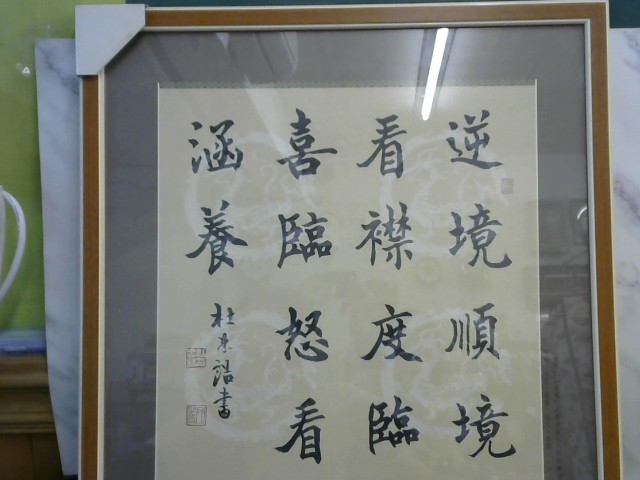 逆境順境
看襟度臨
喜臨怒看
涵養
杜京諮書